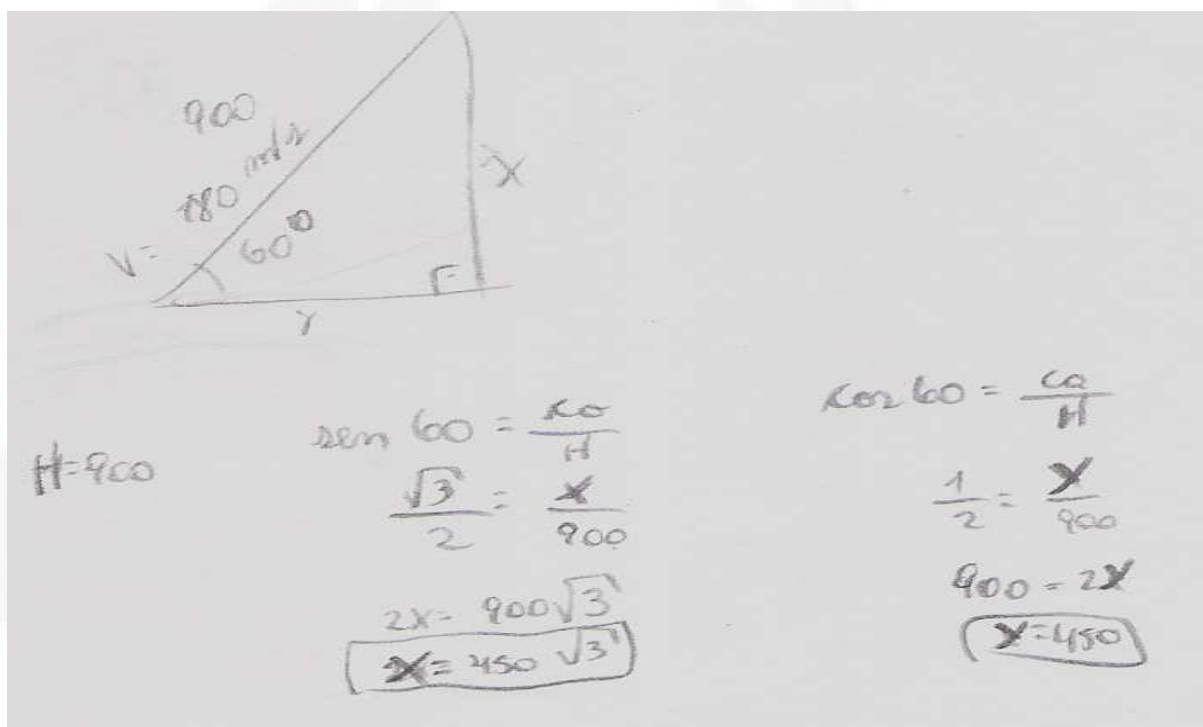 900
180 m/s
V=
60°
X
Y
H=900
sen 60 = co/H
√3/2 = X/900
2X = 900√3
X = 450 √3
cos 60 = ca/H
1/2 = Y/900
900 = 2Y
Y = 450